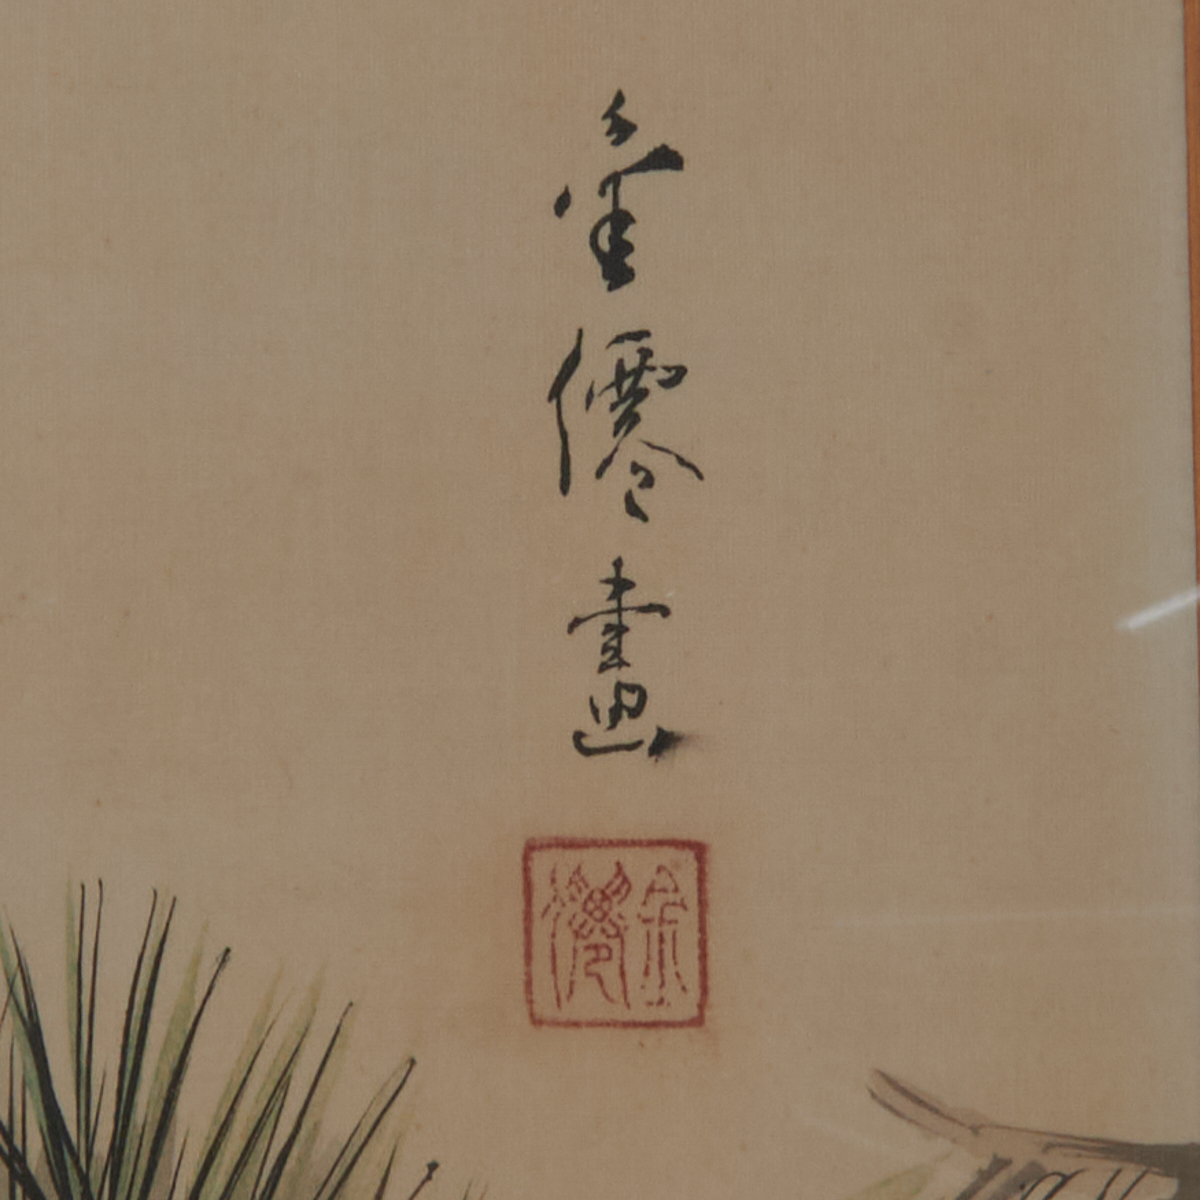 金僊畫
金僊